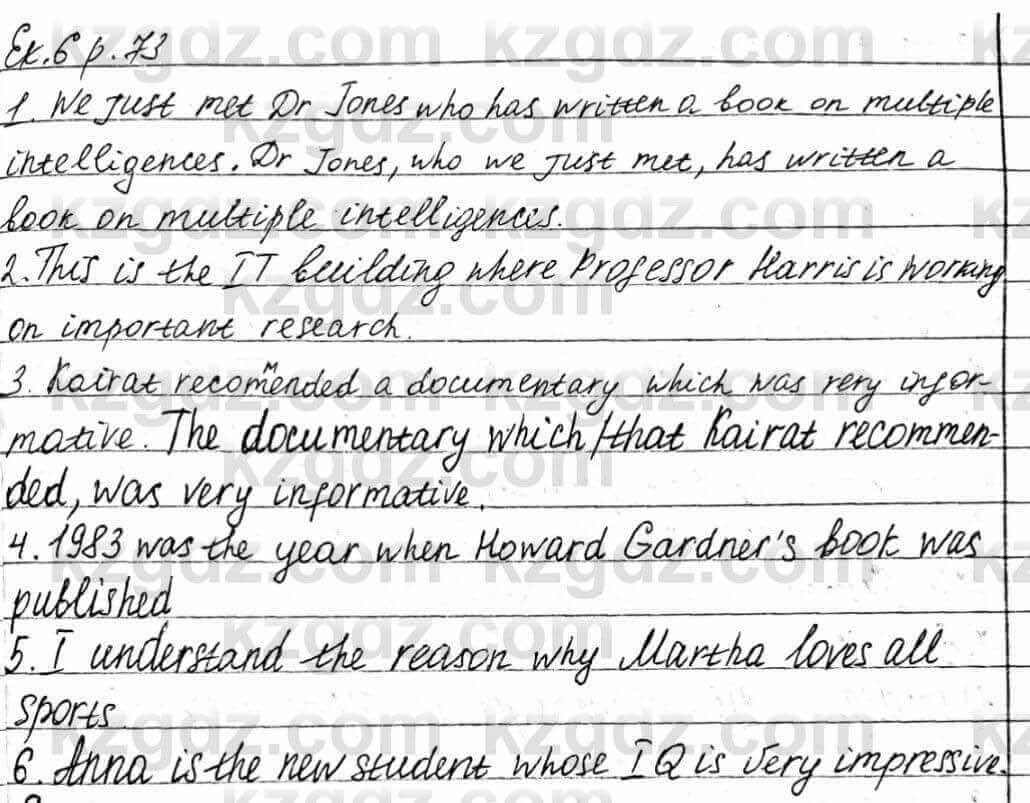 Ex. 6 p. 73
1. We just met Dr Jones who has written a book on multiple
intelligences. Dr Jones, who we just met, has written a
book on multiple intelligences.
2. This is the IT building where Professor Harris is working
on important research.
3. Kairat recommended a documentary which was very infor-
mative. The documentary which/that Kairat recommen-
ded, was very informative.
4. 1983 was the year when Howard Gardner's book was
published
5. I understand the reason why Martha loves all
sports
6. Anna is the new student whose IQ is very impressive.
kzgdz.com